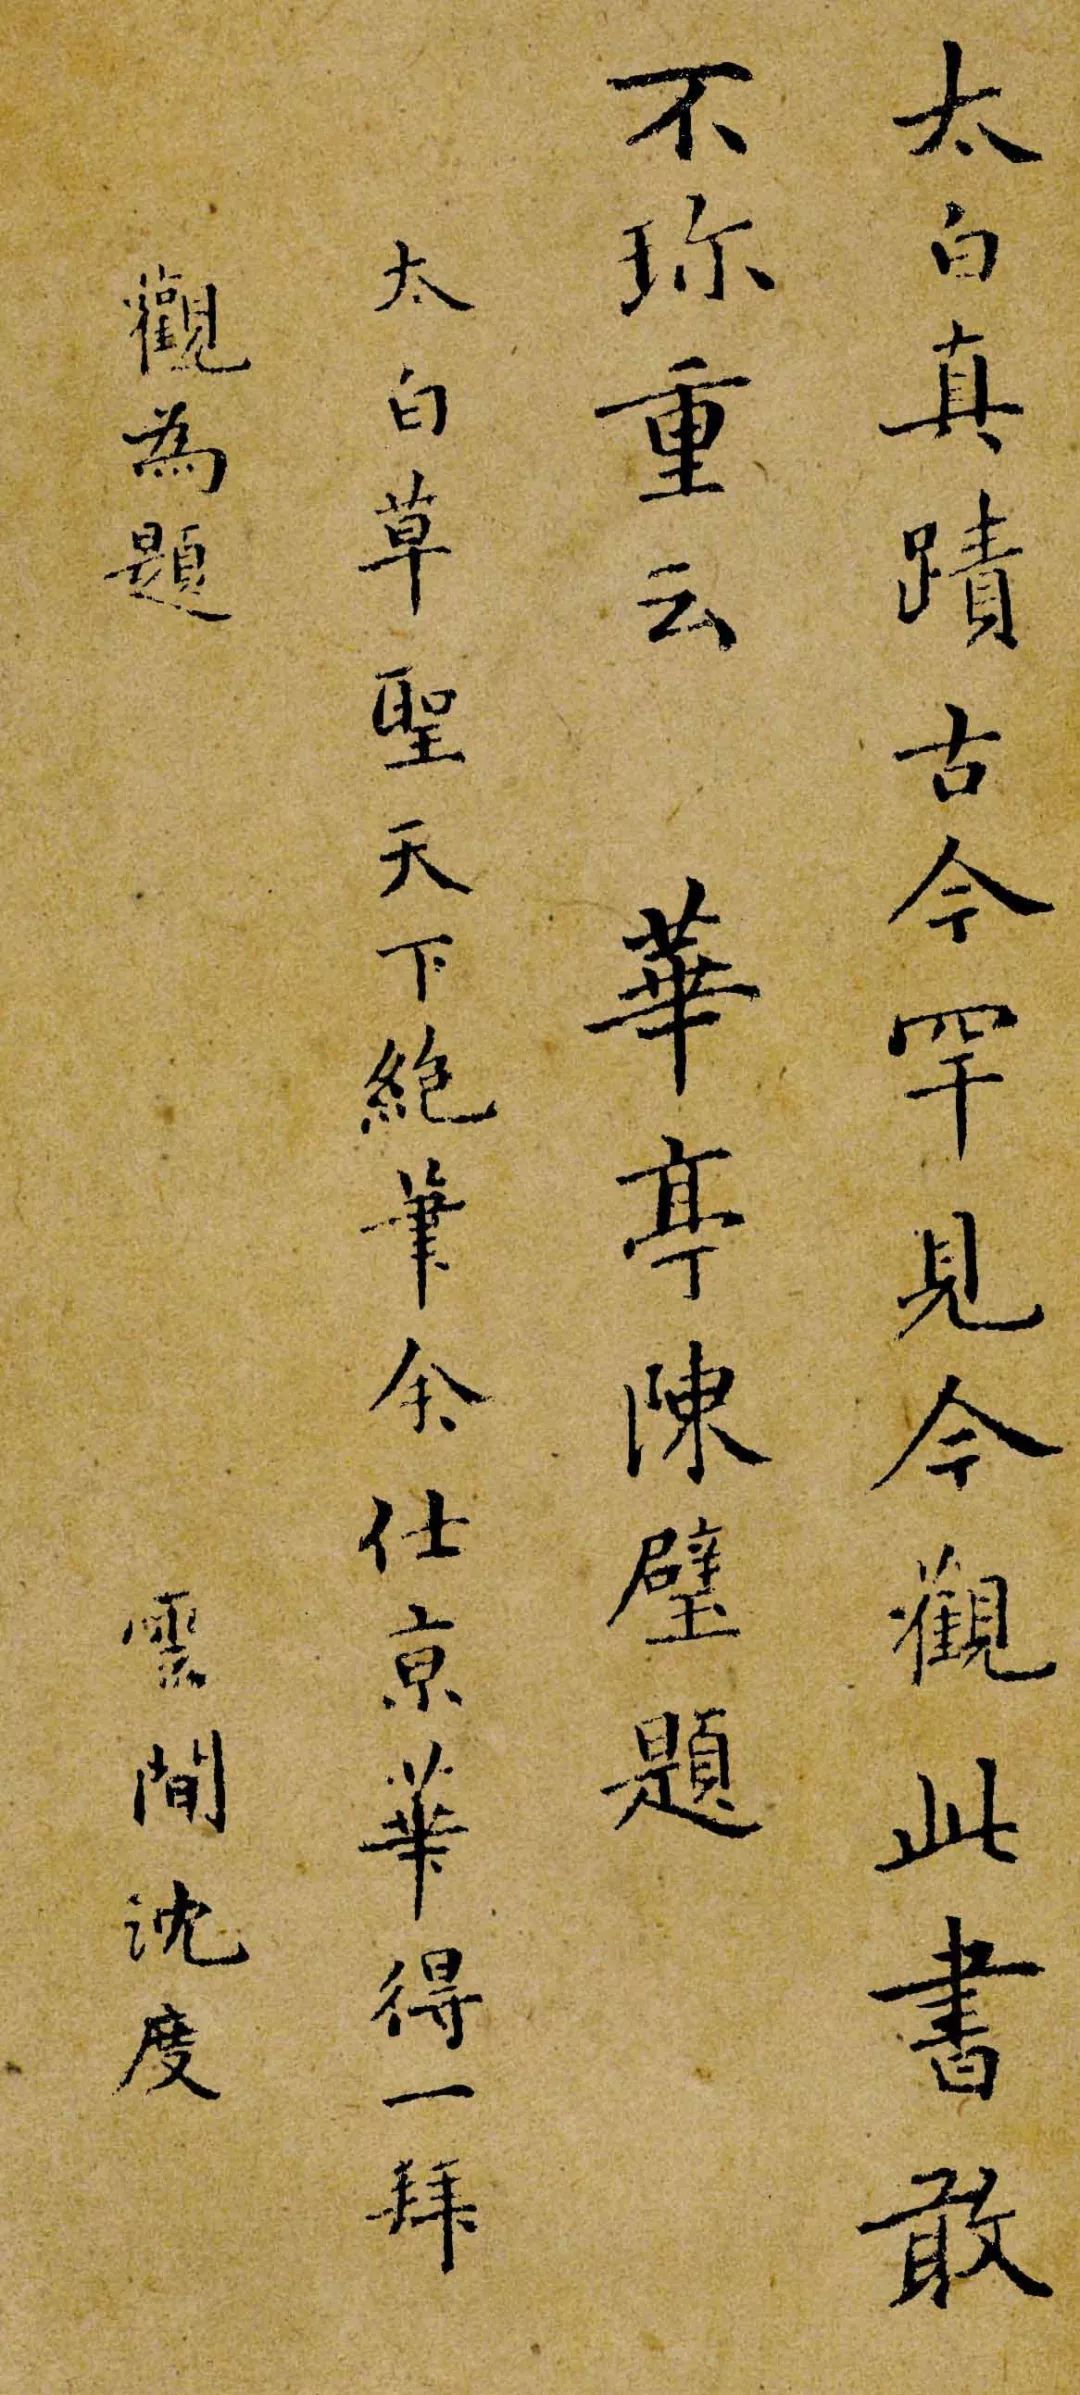 太白真蹟古今罕見今觀此書敢
不珎重云　華亭陳璧題
太白草聖天下絕筆余仕京華得一拜
觀為題　雲間沈度